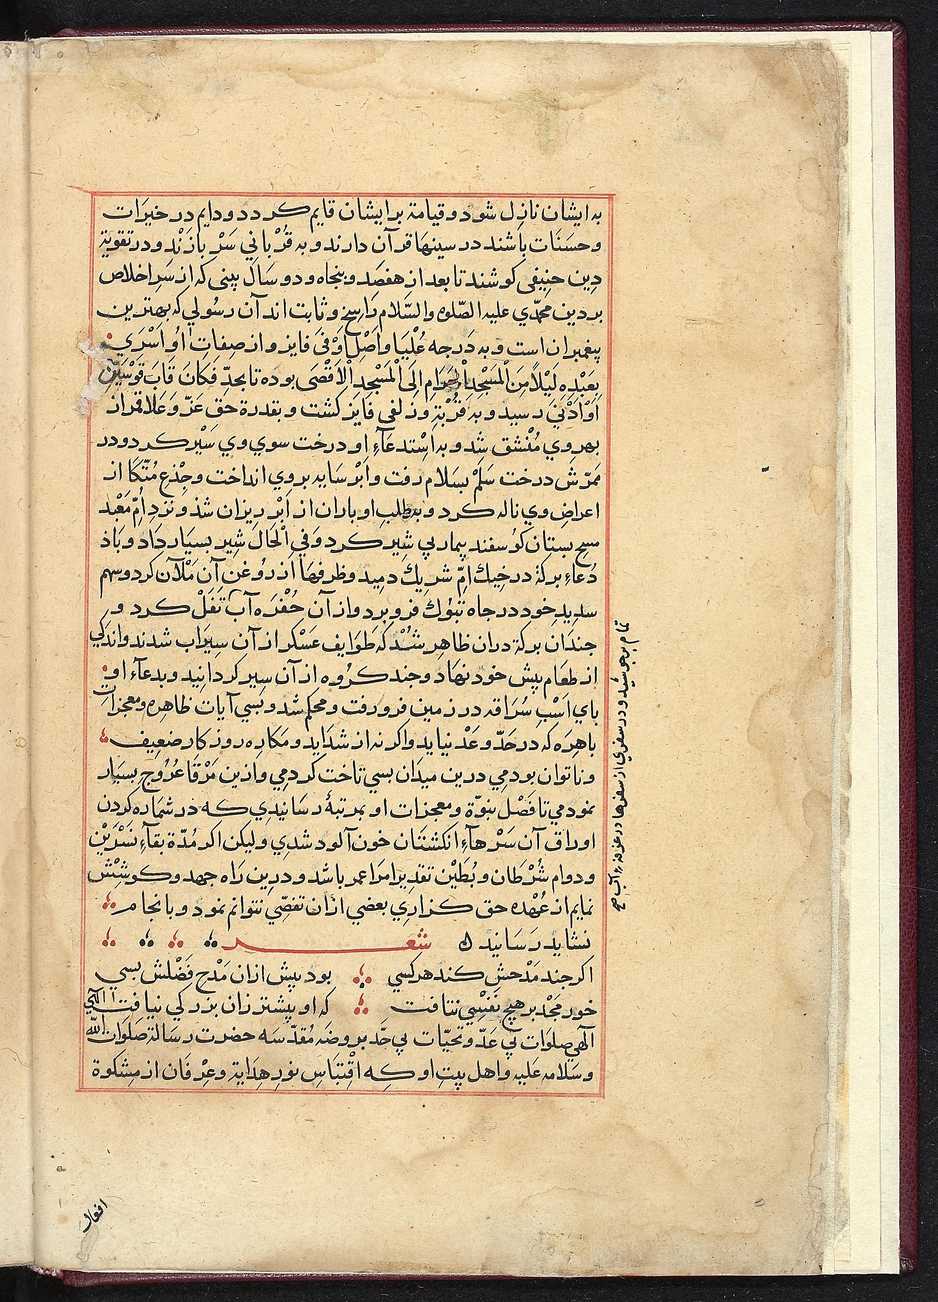 به ایشان نازل شود و قیامة بر ایشان قایم کردد و دایم در خیرات
و حسنات باشند در سینها قرآن دارند و به قربانی سر بازند و در تقویة
دین حنیفی کوشند تا بعد از هفصد و پنجاه و دو سال بینی که از سر اخلاص
بر دین محمدی علیه الصلوه والسلام راسخ و ثابت اند آن رسولی که بهترین
پیغمبران است و به درجه علیا و اصل اوفی فایز و از صفات او اسری
بعبده لیلا من المسجد الحرام الی المسجد الاقصی بوده تا بحد فکان قاب قوسین
او ادنی رسید و به قربة و زلفی فایز کشت و بقدرة حق عز و علا قمر از
بهر وی منشق شد و به استدعاء او درخت سوی وی سیر کرد و در
ممرش درخت سلم بسلام رفت و ابر سایه بر وی انداخت و جذع متکا از
اعراض وی ناله کرد و بطلب او باران از ابر ریزان شد و نزد ام معبد
مسح بستان کوسفند بیمار بی شیر کرد و فی الحال شیر بسیار داد و باد
دعاء برکة در خیك ام شریك دمید و ظرفها از روغن آن ملآن کرد و سهم
سدید خود در جاه تبوك فرو برد و از آن حفره آب تفل کرد و
جندان برکة دران ظاهر شد که طوایف عسکر از آن سیراب شدند و اندکی
از طعام پیش خود نهاد و جند کروه از آن سیر کردانید و بدعاء او
بای اسب سراقه در زمین فرو رفت و محکم شد و بسی آیات ظاهره و معجزات
باهره که در حد و عد نیاید و اکر نه از شداید و مکاره روزکار ضعیف
و ناتوان بودمی درین میدان بسی تاخت کردمی و ازین مرقا عروج بسیار
نمودمی تا فضل نبوة و معجزات او بمرتبهٔ رسانیدی که در شماره کردن
اوراق آن سرهاء انکشتان خون آلود شدی ولیکن اکر مدة بقاء نسرین
و دوام شرطان و بطین تقدیرا مرا عمر باشد و درین راه جهد و کوشش
نمایم از عهده حق کزاری بعضی ازان تفصی نتوانم نمود و بانجام
نشاید رسانید
شعر
اکر جند مدحش کند هر کسی بود بیش ازان مدح فضلش بسی
خور مجد بر هیچ نفسی نتافت که او بیشتر زان بزرکی نیافت
الهی صلوات بی عد و تحیات بی حد بر روضه مقدسه حضرت رسالة صلوات الله
و سلامه علیه و اهل بیت او که اقتباس نور هدایة و عرفان از مشکوة
تمام برجوشید و در سفری از سفرها در غزوه
افعال